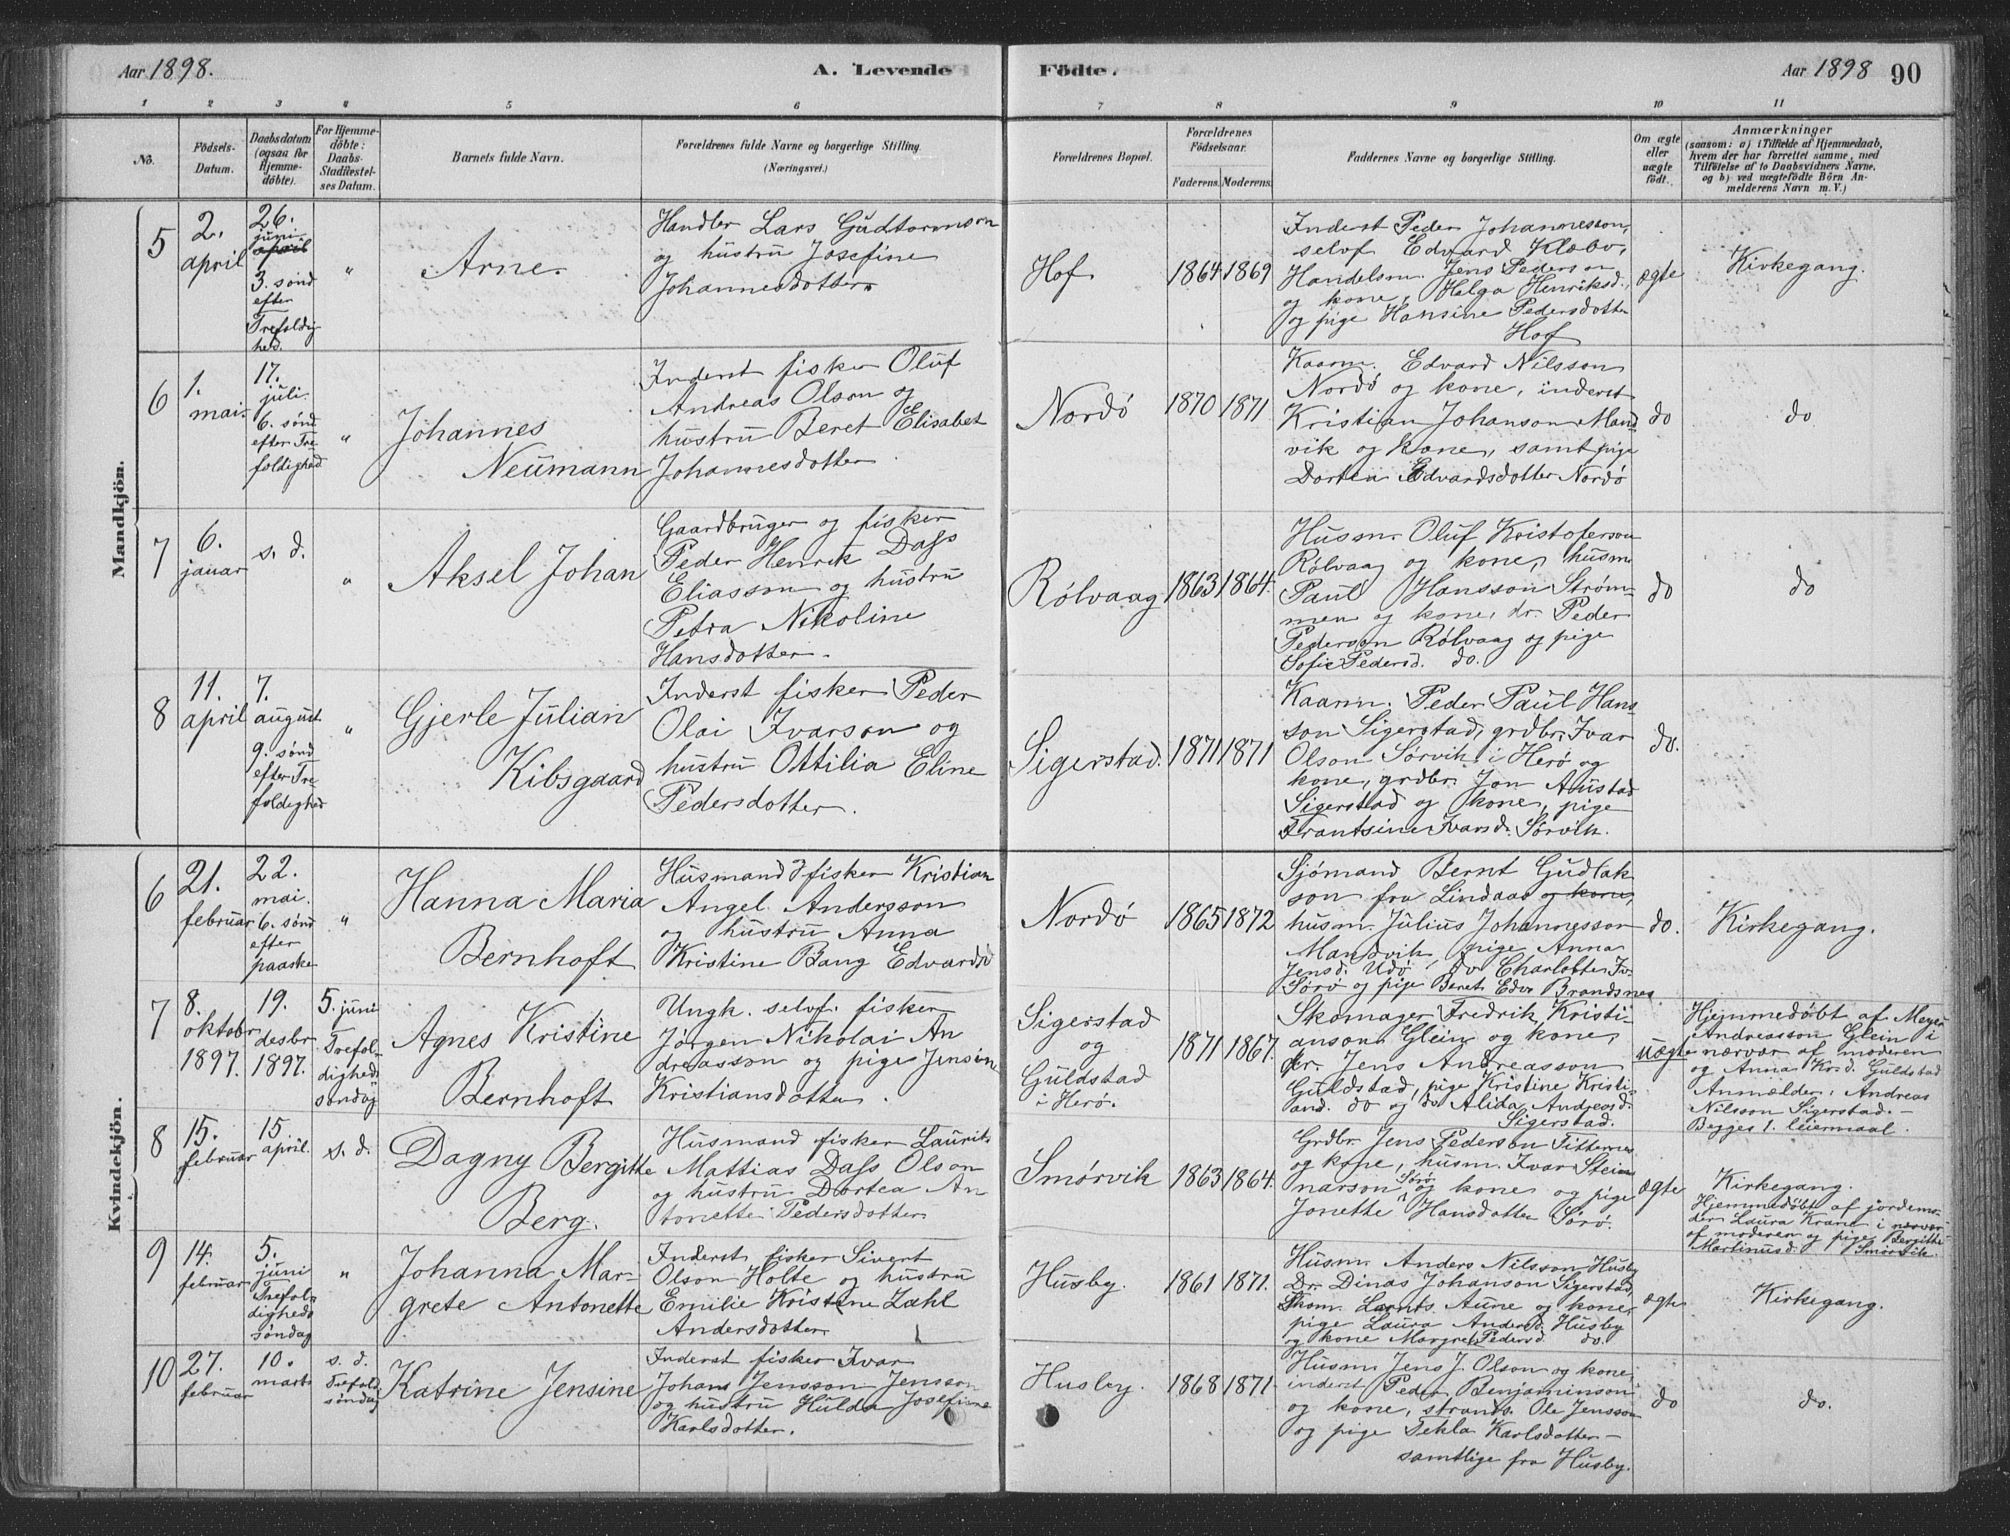 Aar 1898.
A. Levende
Födte.
Aar 1898
90
1
2
3
4
5
6
7
8
9
10
11
No.
Födsels-
Datum.
Daabsdatum
(ogsaa för
Hjemme-
döbte).
For Hjemme-
döbte:
Daabs-
Stadfæstel-
ses Datum.
Barnets fulde Navn.
Forældrenes fulde Navne og borgerlige Stilling.
(Næringsvei.)
Forældrenes Bopæl.
Forældrenes
Födselsaar.
Faderens.
Moderens.
Faddernes Navne og borgerlige Stilling.
Om ægte
eller
uægte
födt.
Anmærkninger
(saasom: a) i Tilfælde af Hjemmedaab,
hvem der har forrettet samme, med
Tilföielse af to Daabsvidners Navne,
og b) ved uægtefödte Börn An-
melderens Navn m. V.)
Mandkjön.
5
2.
april
26.
juni
april
3. sönd
efter
Trefoldig
hed.
"
Arne.
Handler Lars Guttormson
og hustru Josefine
Johannesdotter.
Hof
1864
1869
Inderst Peder Johannesson,
selvf Edvard Klæbo,
Handelsm. Jens Pederson
og kone, Helga Henriksd.,
og pige Hansine Pedersdotter
Hof
ægte
Kirkegang.
6
1.
mai.
17.
juli.
6. sönd
efter Tre
foldighed
"
Johannes
Neumann
Inderst fisker Oluf
Andreas Olson og
hustru Beret Elisabet
Johannesdotter
Nordö
1870
1871
Kaarm. Edvard Nilsson
Nordö og kone, inderst
Kristian Johanson Mand
vik og kone, samt pige
Dortea Edvardsdotter Nordö
do
do
7
6.
januar
s. d.
"
Aksel Johan
Gaardbruger og fisker
Peder Henrik Dass
Eliasson og hustru
Petra Nikoline
Hansdotter.
Rölvaag
1863
1864.
Husm. Oluf Kristoferson
Rölvaag og kone, husm.
Paul Hansson Ström-
men og kone, dr. Peder
Pederson Rölvaag og pige
Sofie Pedersd. do.
do
do
8
11.
april
7.
august
9. sönd
efter Tre
foldighed
"
Gjerle Julian
Kibsgaard
Inderst fisker Peder
Olai Ivarson og
hustru Ottilia Eline
Pedersdotter.
Sigerstad.
1871
1871
Kaarm. Peder Paul Hans-
son Sigerstad, grdbr. Ivar
Olson Sörvik i Herö og
kone, grdbr. Jon Austad
Sigerstad og kone, pige
Frantsine Ivarsd. Sörvik.
do.
Kvindekjön.
6
21.
februar
22.
mai.
6. sönd
efter
paaske
"
Hanna Maria
Bernhoft
Husmand & fisker Kristian
Angel Andersson
og hustru Anna
Kristine Bang Edvardsd
Nordö
1865
1872
Sjömand Bernt Gudlak
son fra Lindaas og kone,
husm. Julius Johannesson
Mandvik, pige Anna
Jensd. Udö, do Charlotte Iv.
Sörö og pige Beret Edv. Brandsnes.
do.
Kirkegang.
7
8.
oktobr
1897.
19.
desbr
1897.
5. juni
Trefol-
digheds
söndag
Agnes Kristine
Bernhoft
Ungk. selvf. fisker
Jörgen Nikolai An
dreasson og pige Jensine
Kristiansdotter.
Sigerstad
og
Guldstad
i Herö.
1871
1867.
Skomager Fredrik Kristi-
anson Glein og kone,
dr. Jens Andreasson
Guldstad, pige Kristine Kristi-
and. do og do Alida Andreasd.
Sigerstad.
uægte
Hjemmedöbt af Meyer
Andreasson Glein i
nærvær af moderen
og Anna Krsd. Guldstad
Anmelder: Andreas
Nilsson Sigerstad.-
Begges 1. leiermaal.
8
15.
februar
15
april.
s. d.
Dagny Bergitte
Berg.
Husmand fisker Laurits
Mattias Dass Olson
og hustru Dortea An
tonette Pedersdotter
Smörvik
1863
1864.
Grdbr. Jens Pederson Titternes
og kone, husm. Ivar Stein
narson Sörö og kone og pige
Jonette Hansdotter Sörö.
ægte
Kirkegang.
Hjemmedöbt af jordemo-
der Laura Krane i nærvær
af moderen og pige Bergitte
Martinusd. Smörvik.
9
14.
februar
5.
juni
Trefol-
digheds
söndag
"
Johanna Mar-
grete Antonette
Inderst fisker Sivert
Olson Holte og hustru
Emilie Kristine Zahl
Andersdotter
Husby.
1861
1871.
Husm. Anders Nilsson Husby
Dr. Dinas Johanson Sigerstad,
Skom. Lornts Aune og kone,
pige Laura Andersd. Husby
og kone Margret Pedersd. do.
ægte
Kirkegang.
10
27.
februar
10.
marts
s. d.
Trefold.
söndag
Katrine Jensine
Inderst fisker Ivar
Johans Jensson Jensson
og hustru Hulda Josefine
Karlsdotter.
Husby.
1868
1871
Husm. Jens J. Olson og kone,
inderst Peder Benjaminson
og kone, strands. Ole Jensson
og pige Tekla Karlsdotter-
samtlige fra Husby.
do
do.